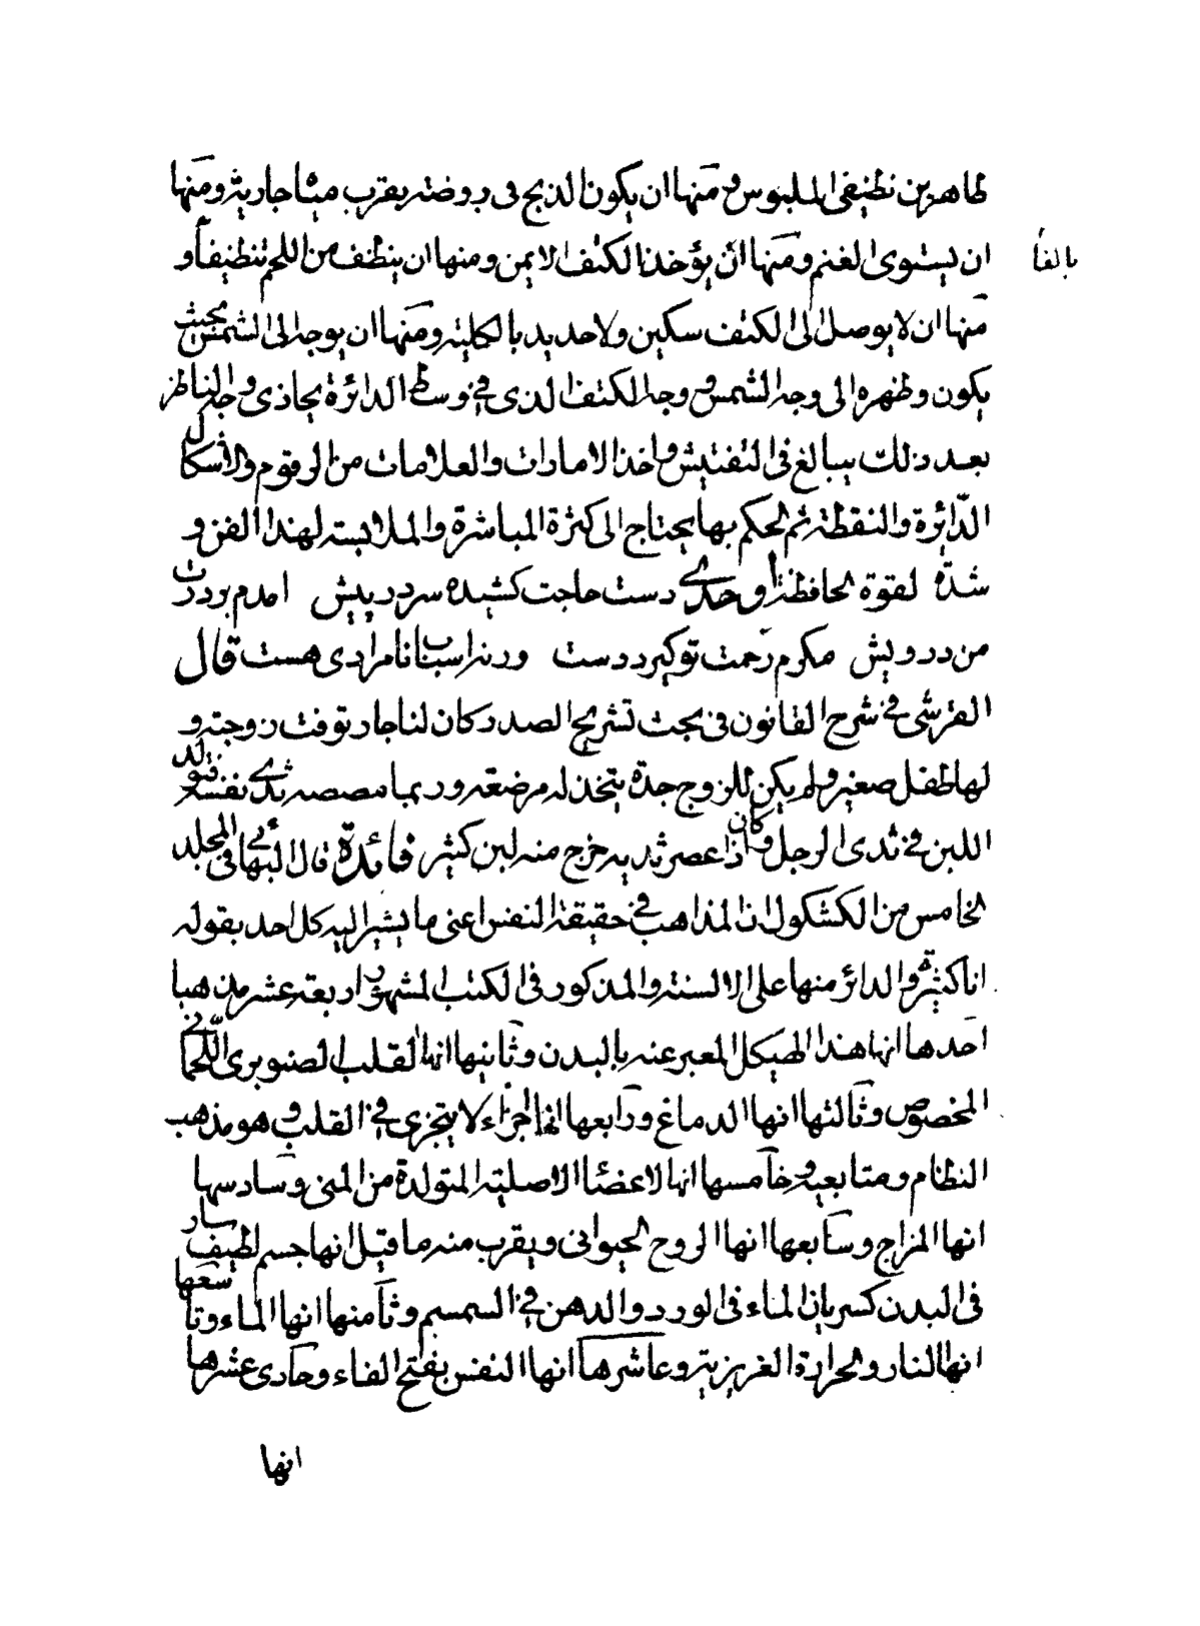 طاهرين نظيفى الملبوس ومنها ان يكون الذبح فى روضة بقرب مياه جارية ومنها
ان يستوى الغنم ومنها ان يؤخذ الكتف الايمن ومنها ان ينظف من اللحم تنظيفاً و
بالغاً
منها ان لا يوصل الى الكتف سكين ولا حديد بالكلية ومنها ان يوجه الى الشمس بحيث
يكون وظهره الى وجه الشمس ووجه الكتف الذى فى وسط الدائرة يحاذى وجه الناظر
بعد ذلك يبالغ فى التفتيش واخذ الامارات والعلامات من الرقوم والاشكال
الدّائرة والنقطة ثم الحكم بها يحتاج الى كثرة المباشرة والملابسة لهذا الفن و
شدّة لقوة الحافظة اوحدى دست حاجت كشيده سر در پيش امدم بر درت
من درويش مكرم رحمت تو كيرد دست ورنه اسباب نامرادى هست قال
القرشى فى شرح القانون فى بحث تشريح الصدر كان لنا جار توفت زوجته و
لها طفل صغير ولم يكن للزوج جدة يتخذ له مرضعة وربما مصصه ثدى نفسه فتولد
اللبن فى ثدى الرجل وكان اذا عصر ثديه خرج منه لبن كثير فائدة قال البهائى فى المجلد
الخامس من الكشكول ان المذاهب فى حقيقة النفس اعنى ما يشير اليه كل احد بقوله
انا كثيرة والدائر منها على الالسنة والمذكور فى الكتب المشهورة اربعة عشر مذهبا
احدها انها هذا الهيكل المعبر عنه بالبدن وثانيها انها القلب الصنوبرى اللّحمانى
المخصوص وثالثها انها الدماغ ورابعها انها اجزاء لا يتجزى فى القلب وهو مذهب
النظام ومتابعيه وخامسها انها الاعضاا الاصلية المتولدة من المنى وسادسها
انها المزاج وسابعها انها الروح الحيوانى ويقرب منه ما قيل انها جسم لطيف سار
فى البدن كسريان الماء فى الورد والدهن فى السمسم وثامنها انها الماء وتاسعها
انها النار والحرارة الغريزية وعاشرها انها النفس بفتح الفاء وحادى عشرها
انها